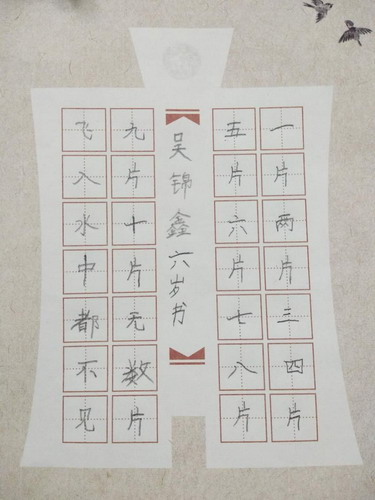 一片两片三四片
五片六片七八片
吴锦鑫六岁书
九片十片无数片
飞入水中都不见